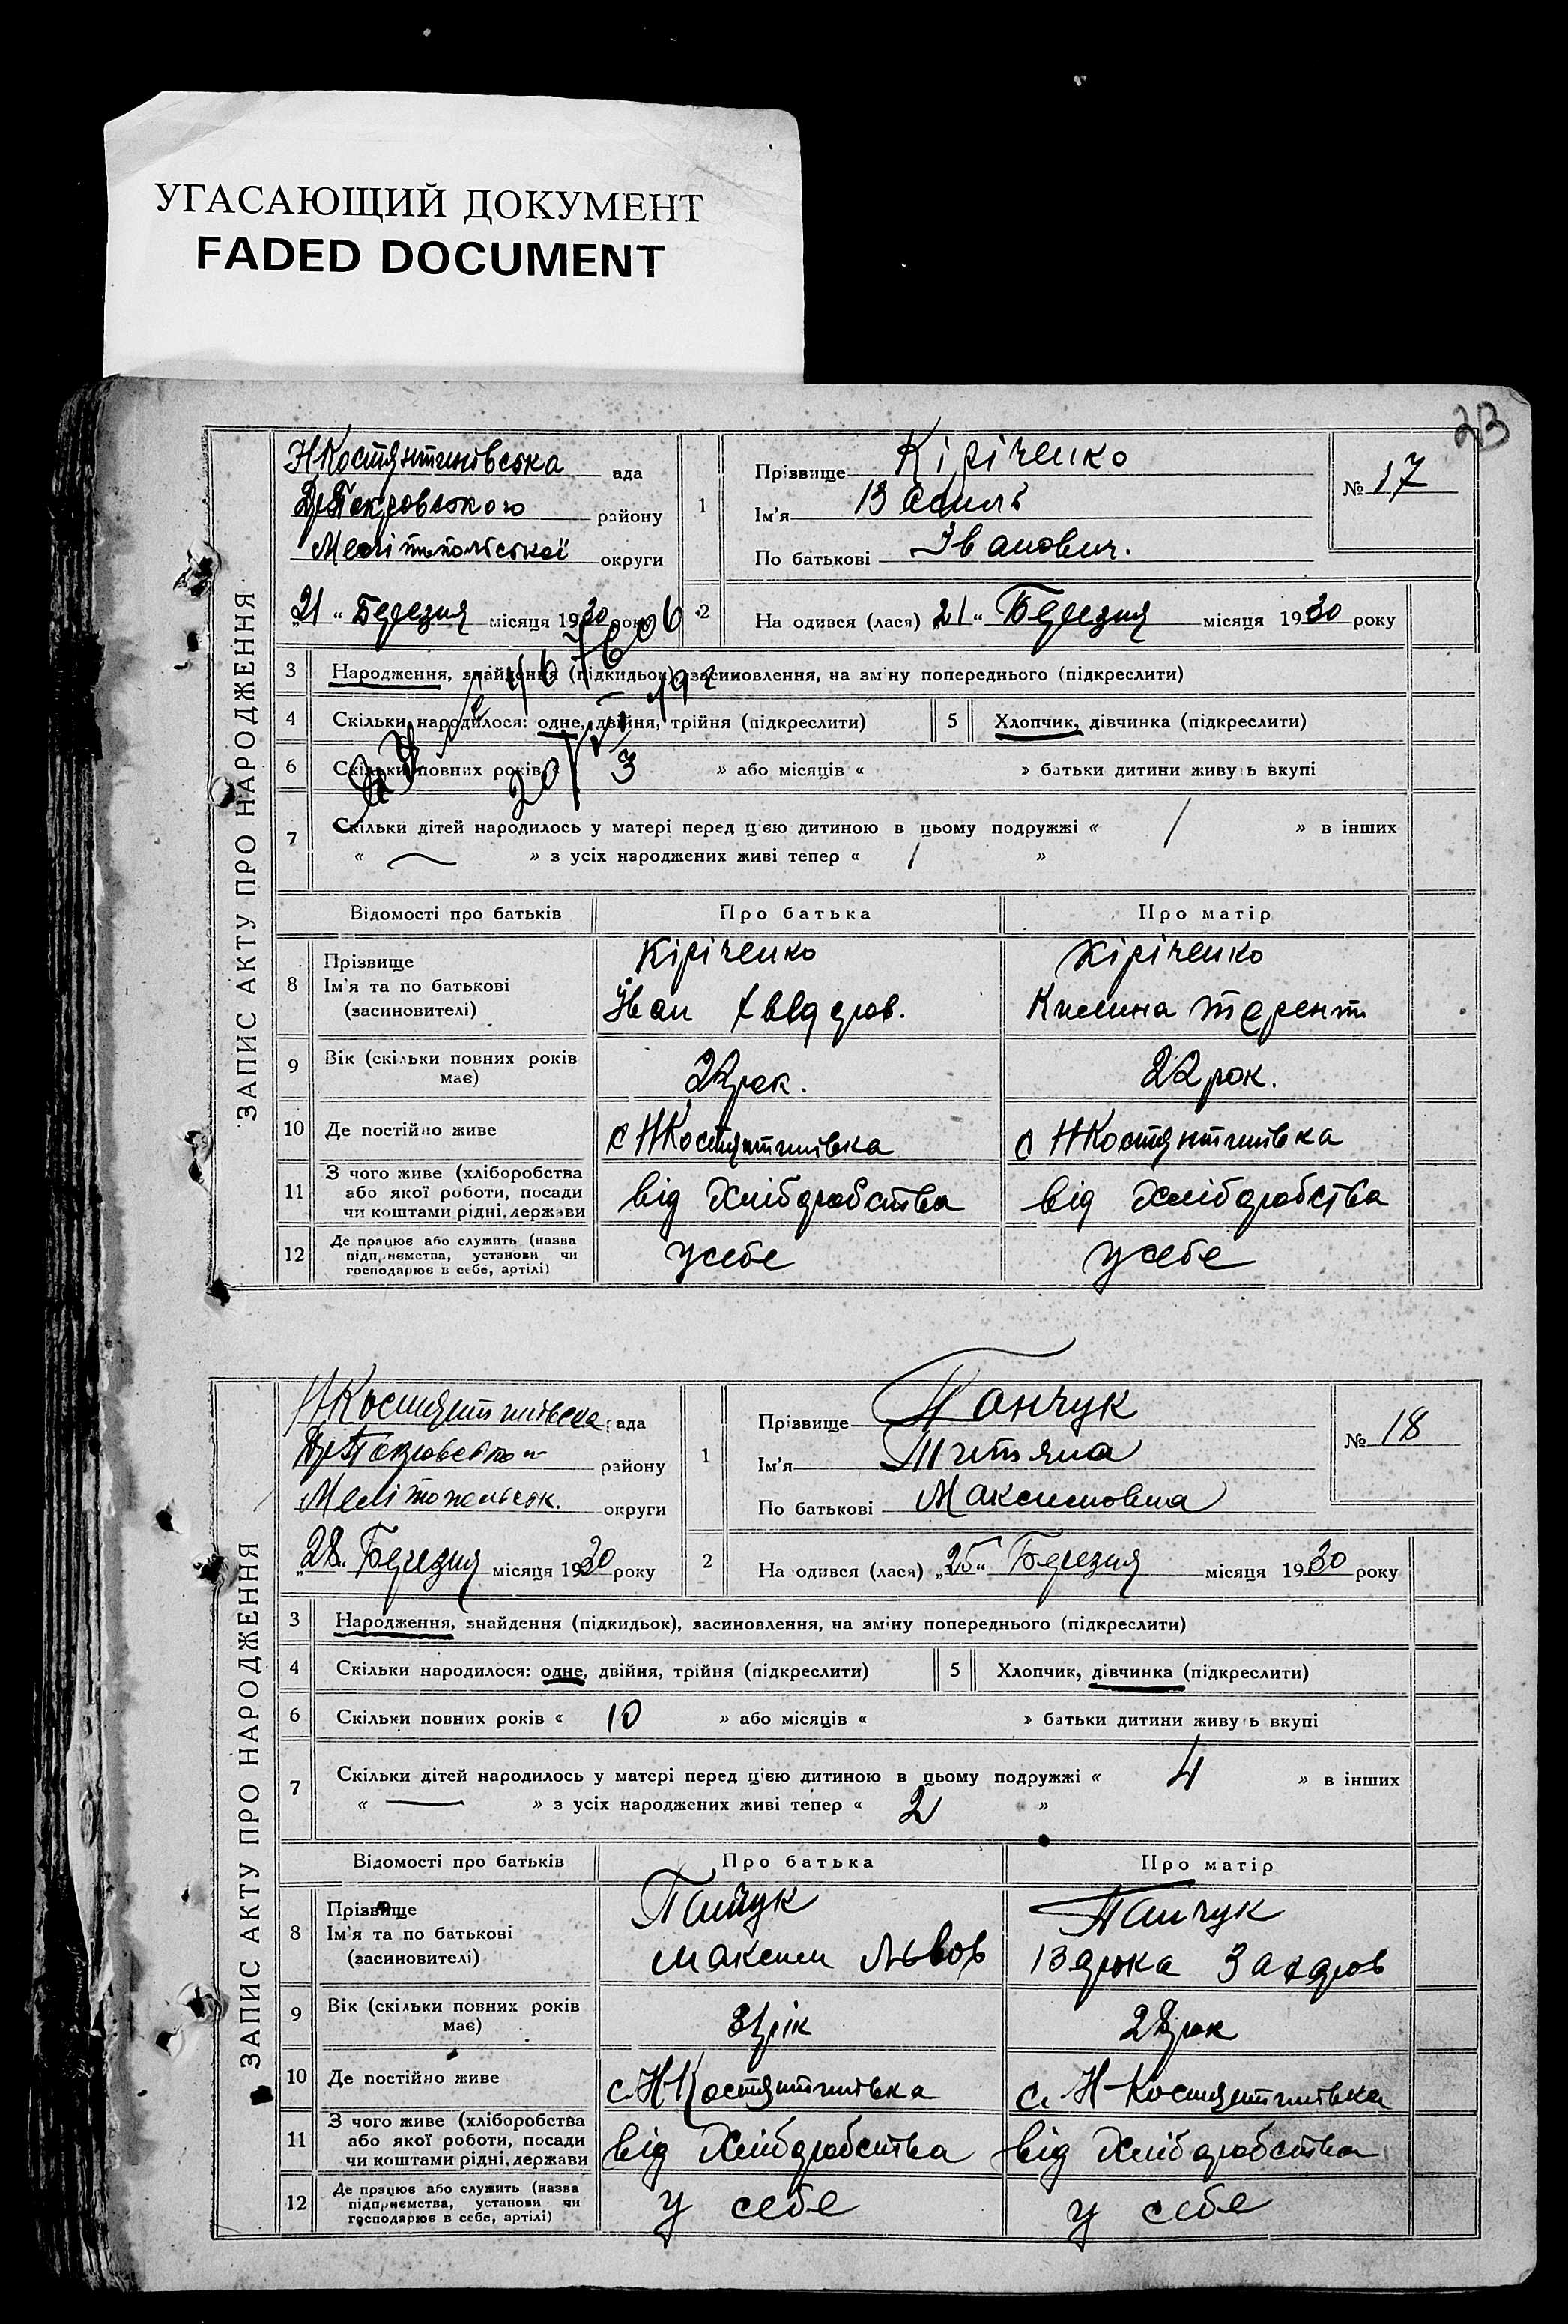 УГАСАЮЩИЙ ДОКУМЕНТ
FADED DOCUMENT
23
ЗАПИС АКТУ ПРО НАРОДЖЕННЯ
НКостянтинівська ада
Покровського району
Мелітопольської округи
„21“ Березня місяця 1930 року
1
Прізвище Кіріченко
Ім'я Василь
По батькові Іванович.
№ 17
2
На одився (лася) 21“ Березня місяця 1930 року
3 Народження, знайдення (підкидьок), засиновлення, на зміну попереднього (підкреслити)
4 Скільки народилося: одне, двійня, трійня (підкреслити) 5 Хлопчик, дівчинка (підкреслити)
6 Скільки повних років « 3 » або місяців « » батьки дитини живуть вкупі
7 Скільки дітей народилось у матері перед цією дитиною в цьому подружжі « 1 » в інших
« — » з усіх народжених живі тепер « 1 »
Відомості про батьків Про батька Про матір
8 Прізвище Кіріченко Кіріченко
Ім'я та по батькові Іван Килина Терент
(засиновителі)
9 Вік (скільки повних років має) 22 рок. 22 рок.
10 Де постійно живе с НКостянтинівка с НКостянтинівка
11 З чого живе (хліборобства від Хлібробства від Хлібробства
або якої роботи, посади
чи коштами рідні, держави
12 Де працює або служить (назва у себе у себе
підприємства, установи чи
господарює в себе, артілі)
ЗАПИС АКТУ ПРО НАРОДЖЕННЯ
НКостянтинівска ада
району
Мелітопольськ. округи
„28“ Березня місяця 1930 року
1
Прізвище Панчук
Ім'я Титяна
По батькові Максимовна
№ 18
2
На одився (лася) „25“ Березня місяця 1930 року
3 Народження, знайдення (підкидьок), засиновлення, на зміну попереднього (підкреслити)
4 Скільки народилося: одне, двійня, трійня (підкреслити) 5 Хлопчик, дівчинка (підкреслити)
6 Скільки повних років « 10 » або місяців « » батьки дитини живуть вкупі
7 Скільки дітей народилось у матері перед цією дитиною в цьому подружжі « 4 » в інших
« — » з усіх народжених живі тепер « 2 »
Відомості про батьків Про батька Про матір
8 Прізвище Панчук Панчук
Ім'я та по батькові Максим Львов
(засиновителі)
9 Вік (скільки повних років має) 31 рік 28 рок
10 Де постійно живе с. НКостянтинівка с. Н-Костянтинівка
11 З чого живе (хліборобства від Хлібробства від Хлібробства
або якої роботи, посади
чи коштами рідні, держави
12 Де працює або служить (назва у себе у себе
підприємства, установи чи
господарює в себе, артілі)